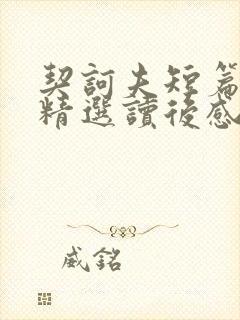 契訶夫短篇
精選讀後感
威銘